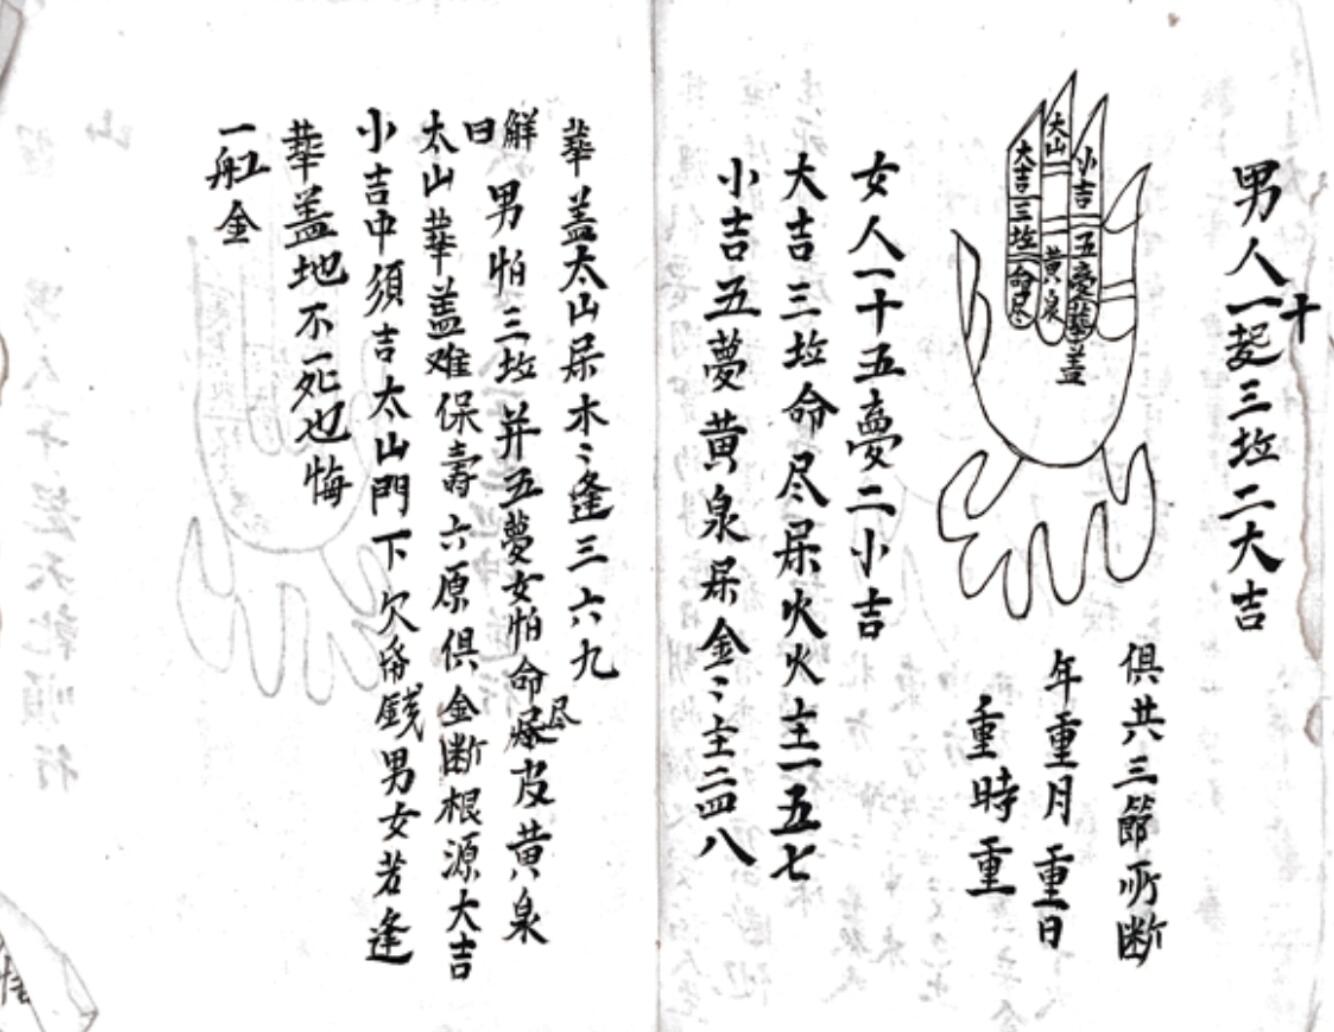 男人一十起三坵二大吉
大山
小吉
大吉
三坵
五夢
黄泉
命尽
華盖
俱共三節所断
年重月重日
重時重
女人一十五夢二小吉
大吉三坵命尽屎火火主一五七
小吉五夢黄泉屎金〻主二四八
華盖太山屎木〻逢三六九
解曰
男怕三坵并五夢女怕命尽皮黄泉
太山華盖难保壽六原俱金断根源大吉
小吉中須吉太山門下欠
錢男女若逢
華盖地不死也悔
一舡金